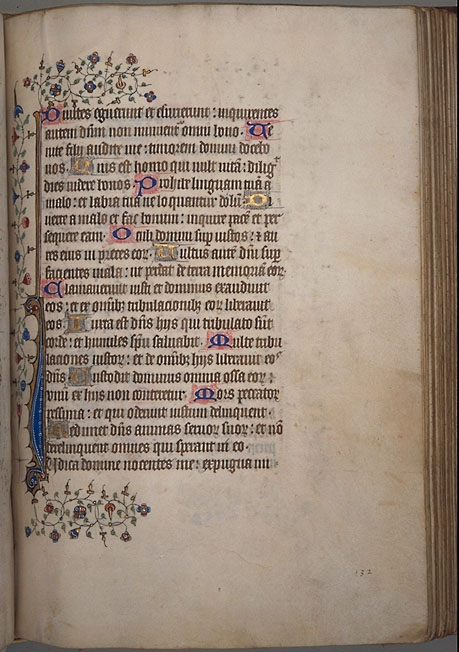 Divites eguerunt et esurierunt : inquirentes
autem dn̄m non minuent᷑ omni bono . Ve
nite filii audite me : timorem domini docebo
vos . Quis est homo qui vult vitā : diligit
dies videre bonos . Prohibe linguam tuā a
malo : et labia tua ne loquantur dolū . Di
verte a malo et fac bonum : inquire pacē et per
sequere eam . Oculi domini sup iustos : ⁊ au
res eius in preces eor . Vultus autē dn̄i sup
facientes mala : ut perdat de terra memoriā eor
Clamaverunt iusti et dominus exaudivit
eos : et ex omnibꝫ tribulacionibꝫ eor liberavit
eos Iuxta est dn̄s hijs qui tribulato sūt
corde : et humiles sp̄u salvabit . Multe tribu
laciones iustor : et de omībꝫ hijs liberavit eos
dn̄s Custodit dominus omnia ossa eor :
unū ex hijs non conteretur . Mors peccator
pessima : et qui oderunt iustum delinquent .
Redimet dn̄s animas servor suor : et nō
derelinquent omnes qui sperant in eo .
Iudica domine nocentes me : expugna im
132